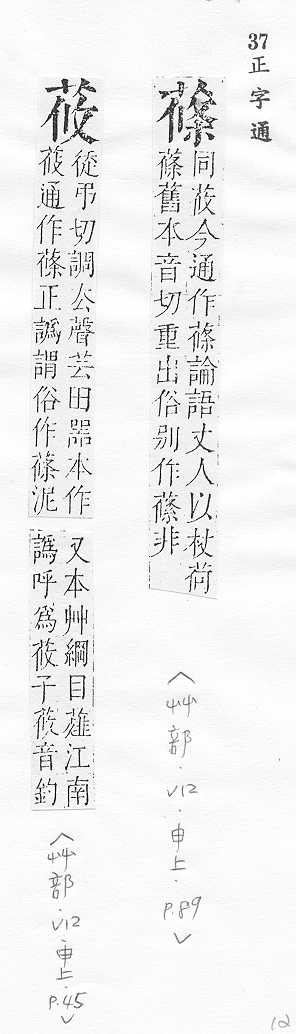 37正字通
蓧
同莜今通作蓧論語丈人以杖荷
蓧舊本音切重出俗别作蓧非
〈艸部.v12.申上.p.89〉
莜
從弔切調去聲芸田器本作
莜通作蓧正譌謂俗作蓧泥
又本艸綱目薤江南
譌呼爲莜子莜音釣
〈艸部.v12.申上.p.45〉
12